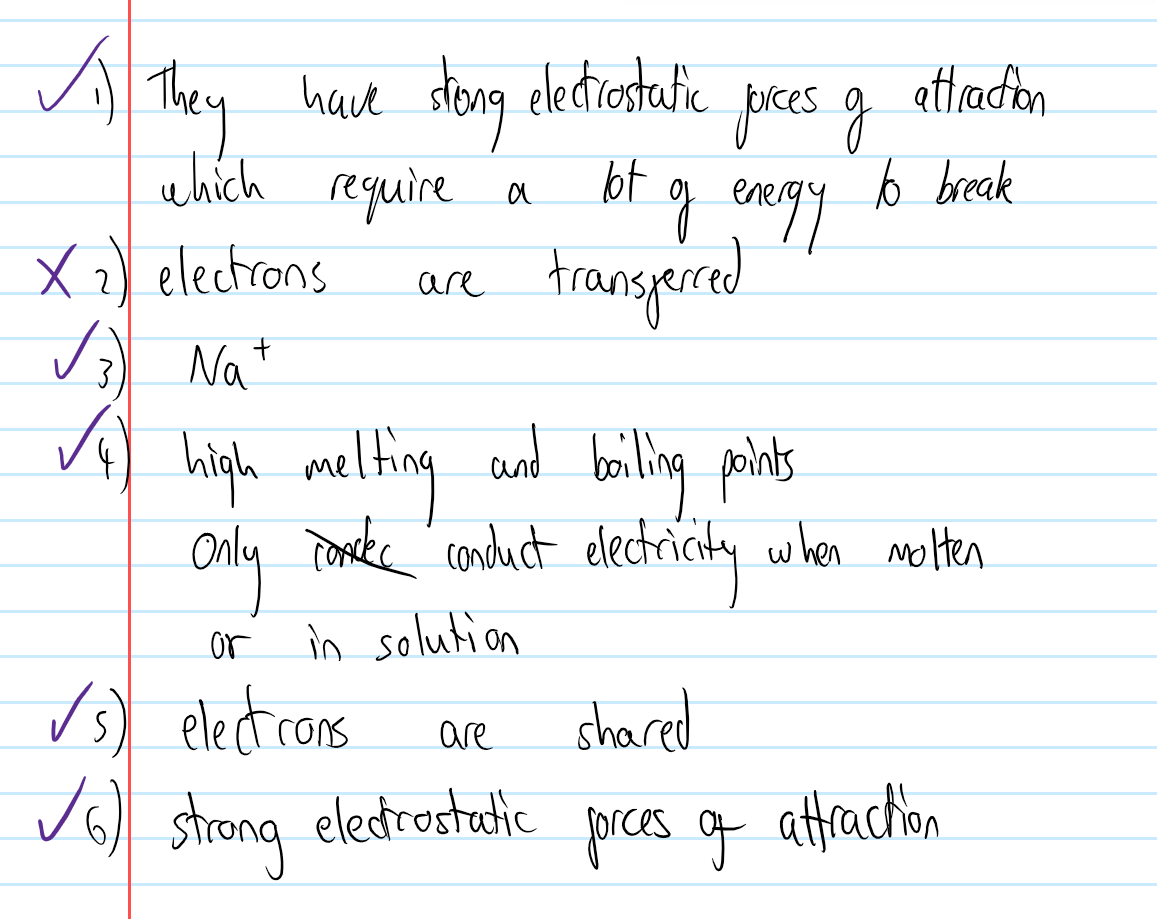 ✓ 1) They have strong electrostatic forces of attraction
which require a lot of energy to break
X 2) electrons are transferred
✓ 3) Na⁺
✓ 4) high melting and boiling points
Only conduct electricity when molten
or in solution
✓ 5) electrons are shared
✓ 6) strong electrostatic forces of attraction